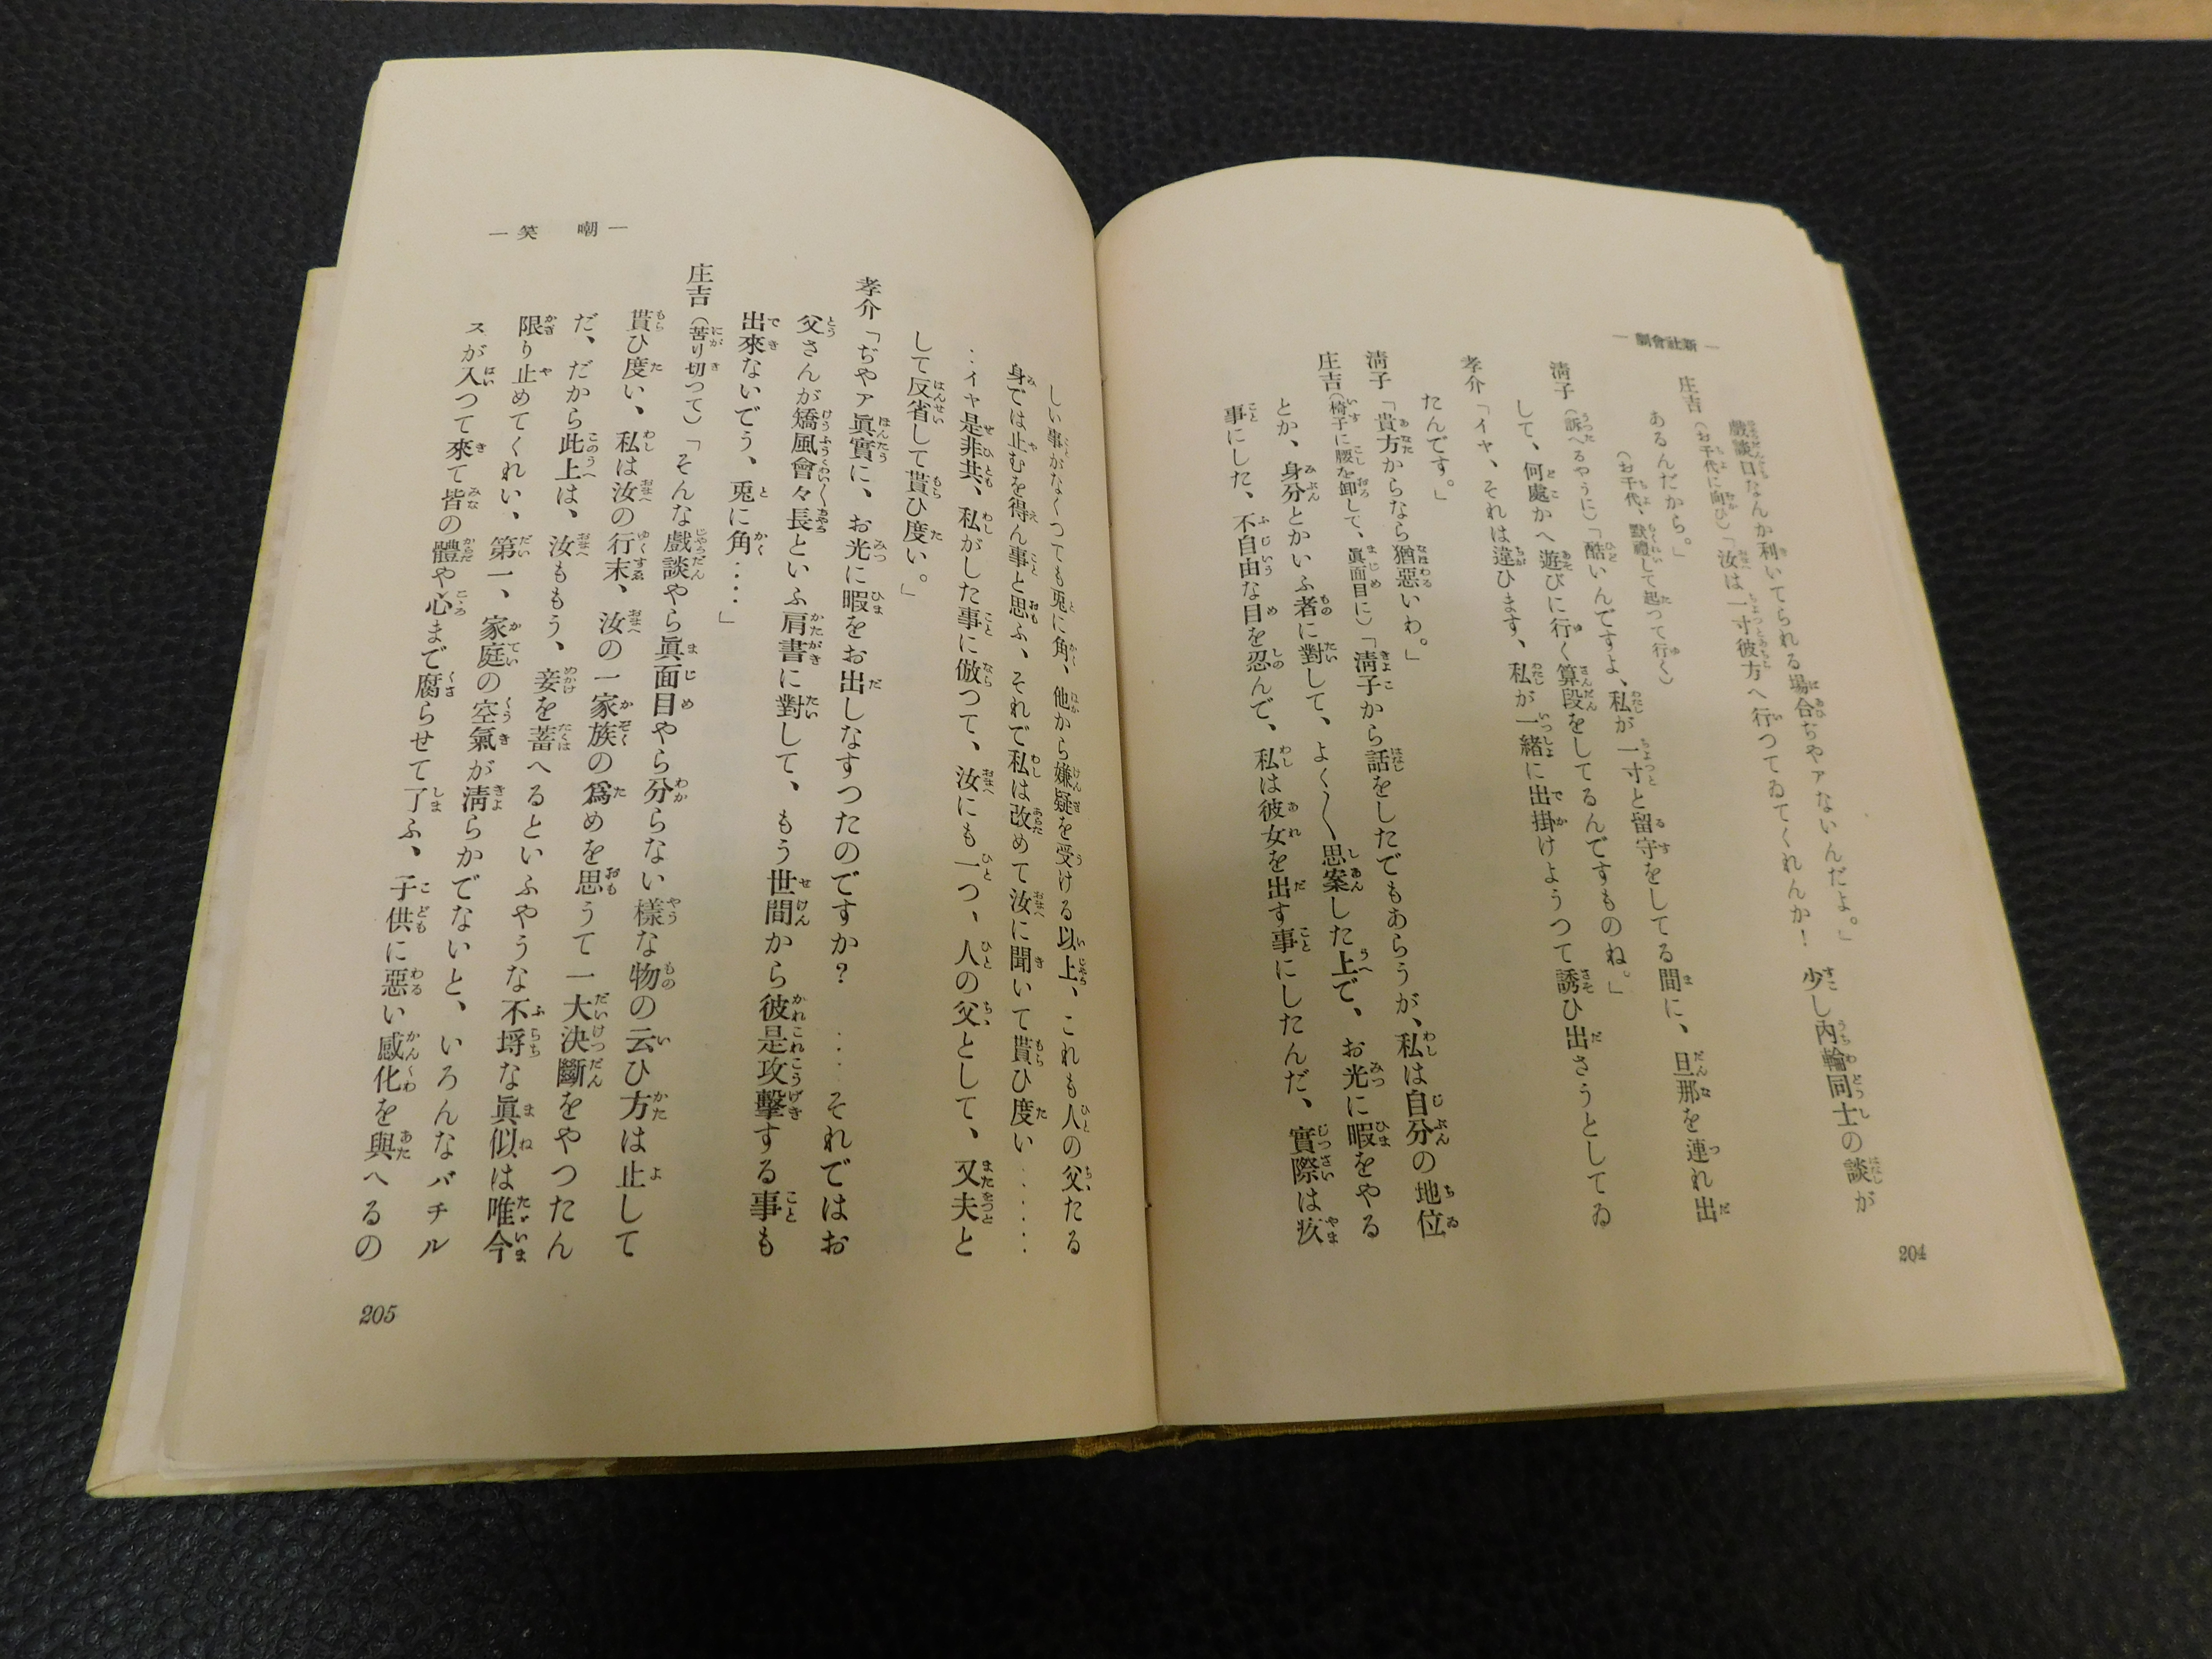 ― 新社會劇 ―
戲談口なんか利いてられる場合ぢやァないんだよ。」
庄吉(お千代に向ひ)「汝は一寸彼方へ行つてゐてくれんか! 少し內輪同士の談が
あるんだから。」
(お千代、默禮して起つて行く)
淸子(訴へるやうに)「酷いんですよ、私が一寸と留守をしてる間に、旦那を連れ出
して、何處かへ遊びに行く算段をしてるんですものね。」
孝介「イヤ、それは違ひます、私が一緖に出掛けようつて誘ひ出さうとしてゐ
たんです。」
淸子「貴方からなら猶惡いわ。」
庄吉(椅子に腰を卸して、眞面目に)「淸子から話をしたでもあらうが、私は自分の地位
とか、身分とかいふ者に對して、よく〱思案した上で、お光に暇をやる
事にした、不自由な目を忍んで、私は彼女を出す事にしたんだ、實際は疚
204
― 嘲笑 ―
しい事がなくつても兎に角、他から嫌疑を受ける以上、これも人の父たる
身では止むを得ん事と思ふ、それで私は改めて汝に聞いて貰ひ度い‥‥‥
‥イヤ是非共、私がした事に倣つて、汝にも一つ、人の父として、又夫と
して反省して貰ひ度い。」
孝介「ぢやァ眞實に、お光に暇をお出しなすつたのですか? ‥‥それではお
父さんが矯風會々長といふ肩書に對して、もう世間から彼是攻擊する事も
出來ないでう、兎に角‥‥」
庄吉(苦り切つて)「そんな戲談やら眞面目やら分らない樣な物の云ひ方は止して
貰ひ度い、私は汝の行末、汝の一家族の爲めを思うて一大決斷をやつたん
だ、だから此上は、汝ももう、妾を蓄へるといふやうな不埒な眞似は唯今
限り止めてくれい、第一、家庭の空氣が淸らかでないと、いろんなバチル
スが入つて來て皆の體や心まで腐らせて了ふ、子供に惡い感化を與へるの
205